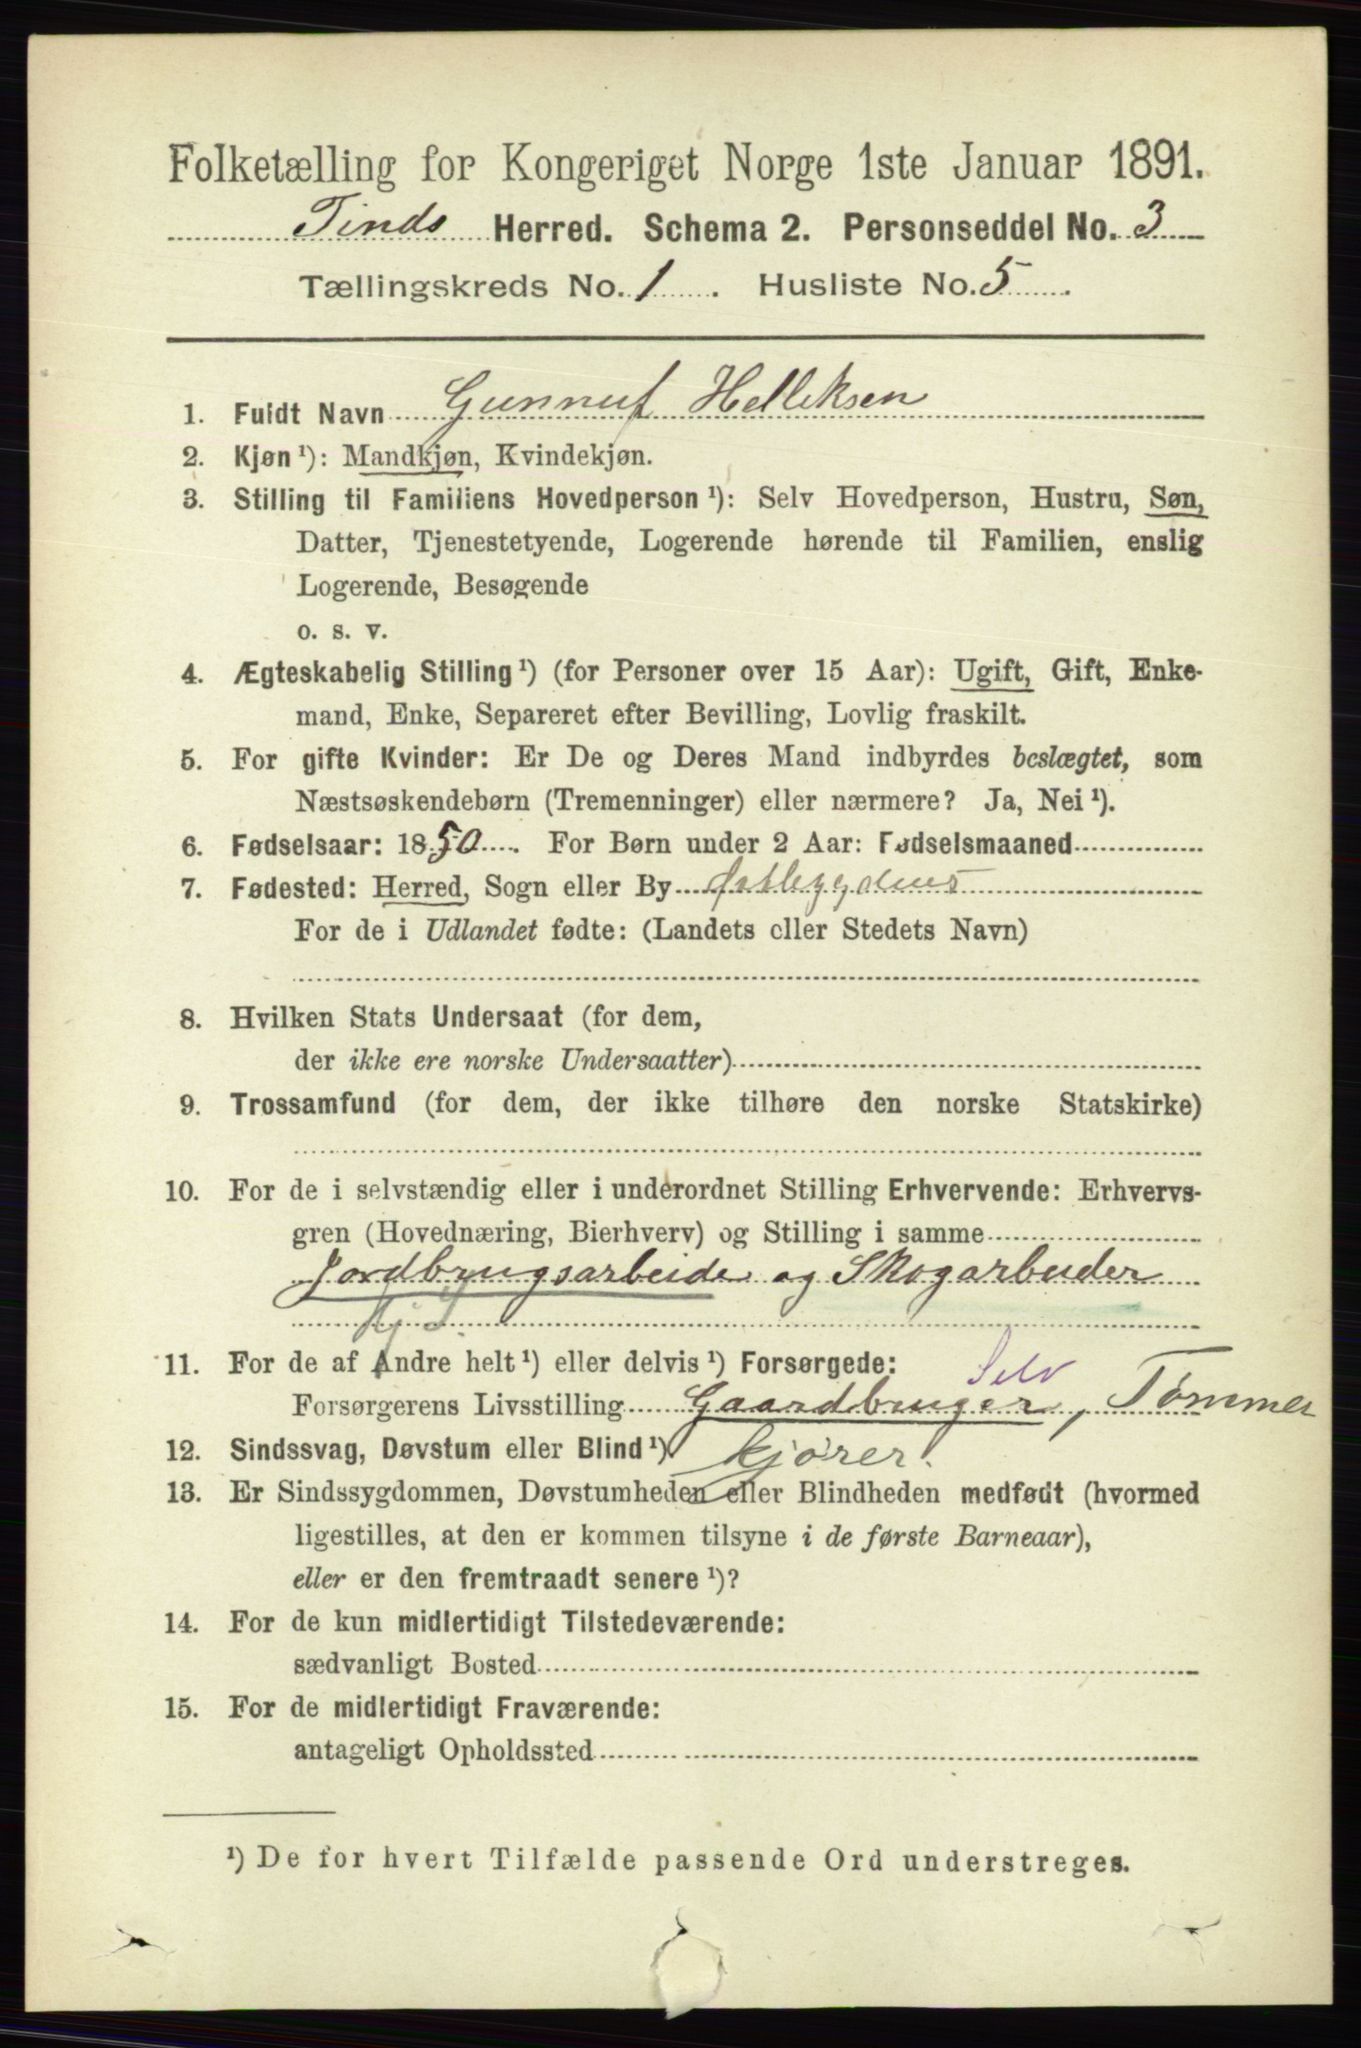 Folketælling for Kongeriget Norge 1ste Januar 1891.
Tinds Herred. Schema 2. Personseddel No. 3
Tællingskreds No. 1. Husliste No. 5.
1. Fuldt Navn Gunnuf Helleksen
2. Kjøn ¹): Mandkjøn, Kvindekjøn.
3. Stilling til Familiens Hovedperson ¹): Selv Hovedperson, Hustru, Søn,
Datter, Tjenestetyende, Logerende hørende til Familien, enslig
Logerende, Besøgende
o. s. v.
4. Ægteskabelig Stilling ¹) (for Personer over 15 Aar): Ugift, Gift, Enke-
mand, Enke, Separeret efter Bevilling, Lovlig fraskilt.
5. For gifte Kvinder: Er De og Deres Mand indbyrdes beslægtet, som
Næstsøskendebørn (Tremenninger) eller nærmere? Ja, Nei ¹).
6. Fødselsaar: 1850. For Børn under 2 Aar: Fødselsmaaned
7. Fødested: Herred, Sogn eller By Østbygdens
For de i Udlandet fødte: (Landets eller Stedets Navn)
8. Hvilken Stats Undersaat (for dem,
der ikke ere norske Undersaatter)
9. Trossamfund (for dem, der ikke tilhøre den norske Statskirke)
10. For de i selvstændig eller i underordnet Stilling Erhvervende: Erhvervs-
gren (Hovednæring, Bierhverv) og Stilling i samme
Jordbrugsarbeide og Skogarbeider
11. For de af Andre helt ¹) eller delvis ¹) Forsørgede: Selv
Forsørgerens Livsstilling Gaardbruger, Tømmer
12. Sindssvag, Døvstum eller Blind ¹) kjører.
13. Er Sindssygdommen, Døvstumheden eller Blindheden medfødt (hvormed
ligestilles, at den er kommen tilsyne i de første Barneaar),
eller er den fremtraadt senere ¹)?
14. For de kun midlertidigt Tilstedeværende:
sædvanligt Bosted
15. For de midlertidigt Fraværende:
antageligt Opholdssted
¹) De for hvert Tilfælde passende Ord understreges.